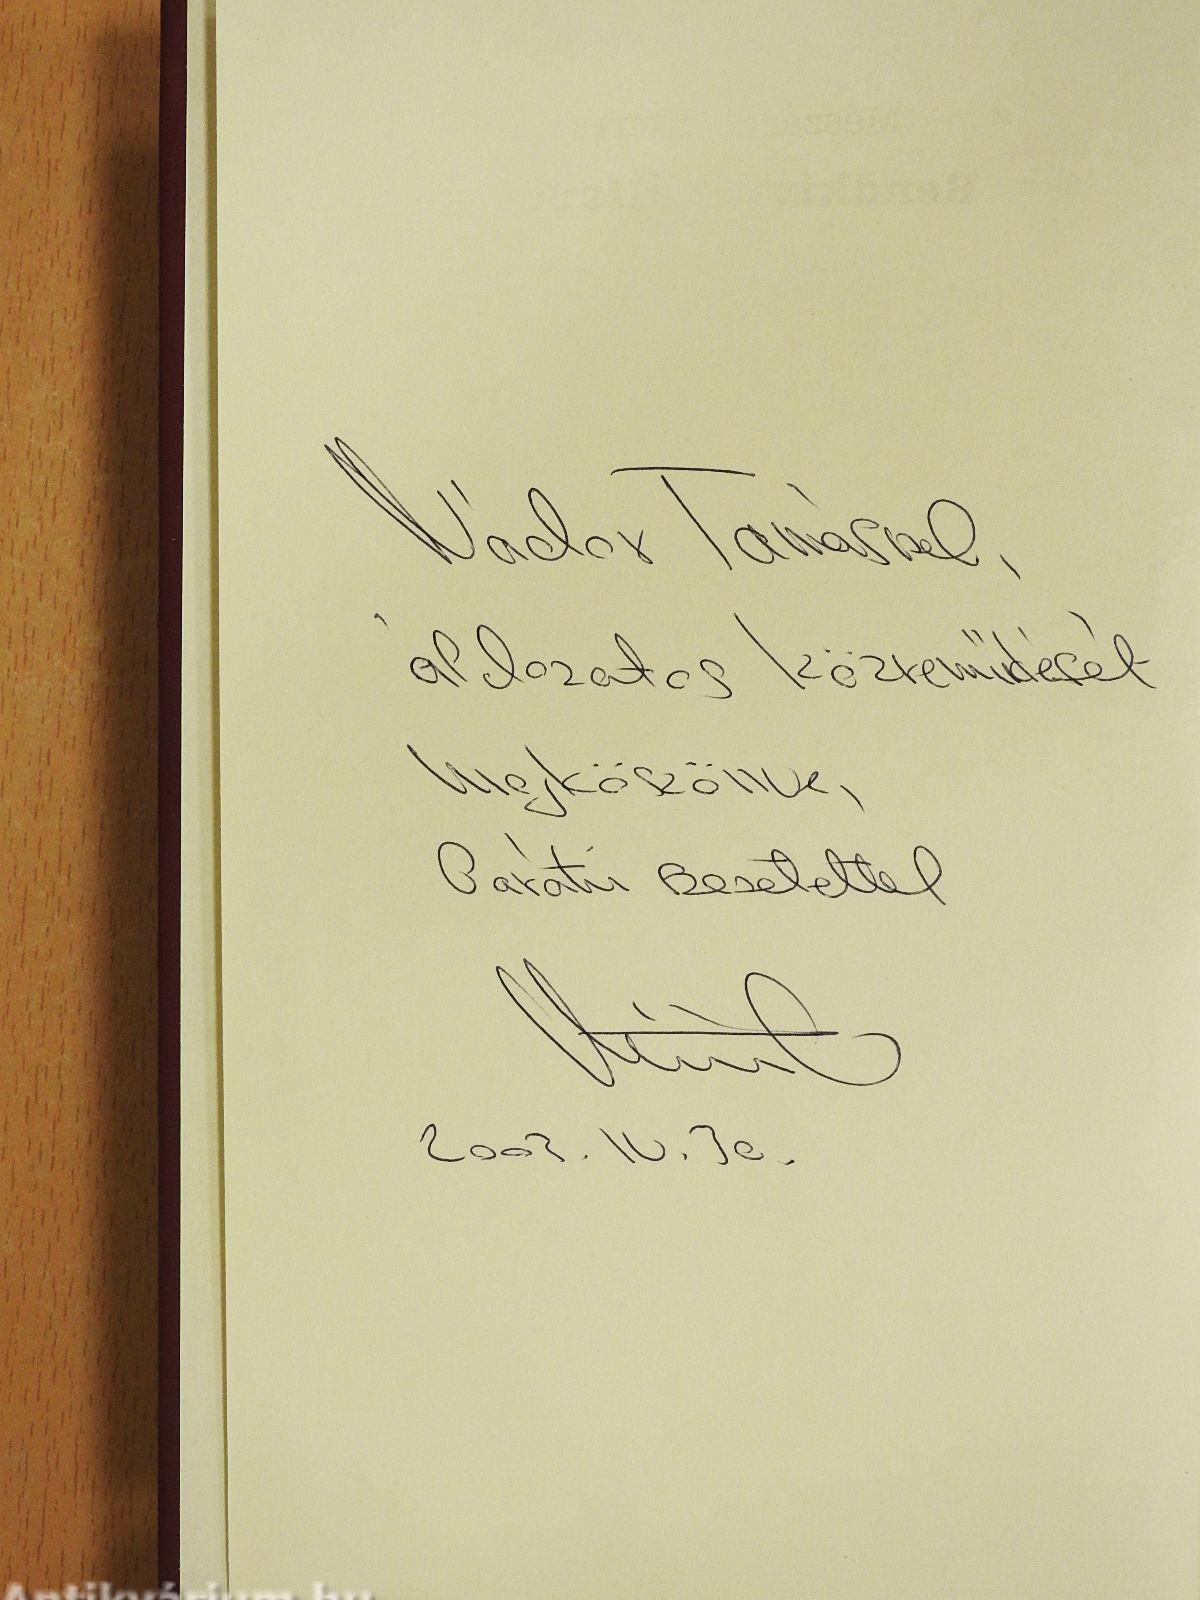 Nádor Tamásnak,
áldozatos közreműködését
megköszönve,
baráti szeretettel
2003. IV. 30.
Antikvárium.hu